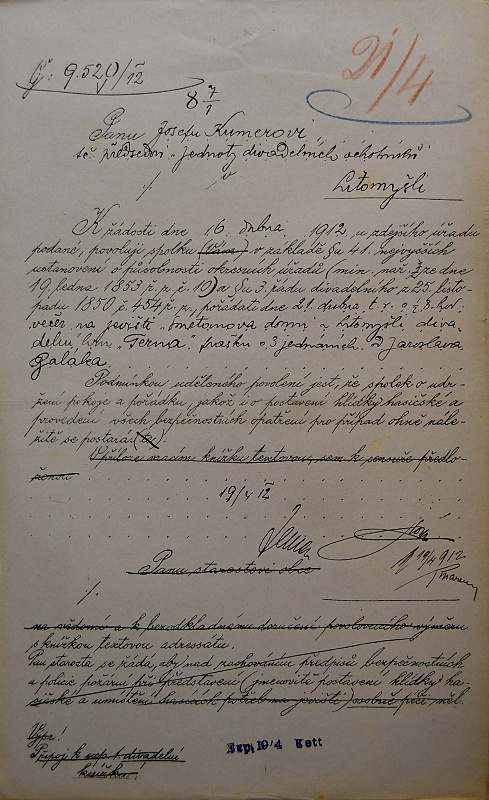 Čj: 9.520/12
21/4
8 7/1
Panu Josefu Kumerovi,
t. č. předsedovi "Jednoty divadelních ochotníků"
v
Litomyšli
K žádosti dne 16. dubna 1912 u zdejšího úřadu
podané, povoluji spolku v základě §u 41. nejvyšších
ustanovení o působnosti okresních úřadů (min. nař. ze dne
19. ledna 1853 ř. z. č 10) a §u 3. řádu divadelního z 25. listo-
padu 1850 č. 454 ř. z., pořádati dne 21. dubna t. r. o ½ 8. hod.
večer na jevišti "Smetanova domu" v Litomyšli, diva
delní hru "Terna", frašku o 3 jednáních. Od Jaroslava
Galáka.
Podmínkou uděleného povolení jest, že spolek o udr-
žení pokoje a pořádku, jakož i o postavení hlídky hasičské a
provedení všech bezpečnostních opatření pro případ ohně nále-
žitě se postará.
V příloze vracím knížku textovou, sem k censuře předlo-
ženou
19/4 12
19/4 912
Panu starostovi obce
na vědomí a k bezodkladnému doručení povolovacího výměru
s knížkou textovou adresátu.
Pan starosta se žádá, aby nad zachováním předpisů bezpečnostních
a policie požární při představení (jmenovitě postavení hlídky ha-
sičské a umístění hasicích potřeb na jevišti) osobně péči měl.
Výpr!
Připoj k exp. 1 divadelní
knížku
Exp. 19/4 Kett